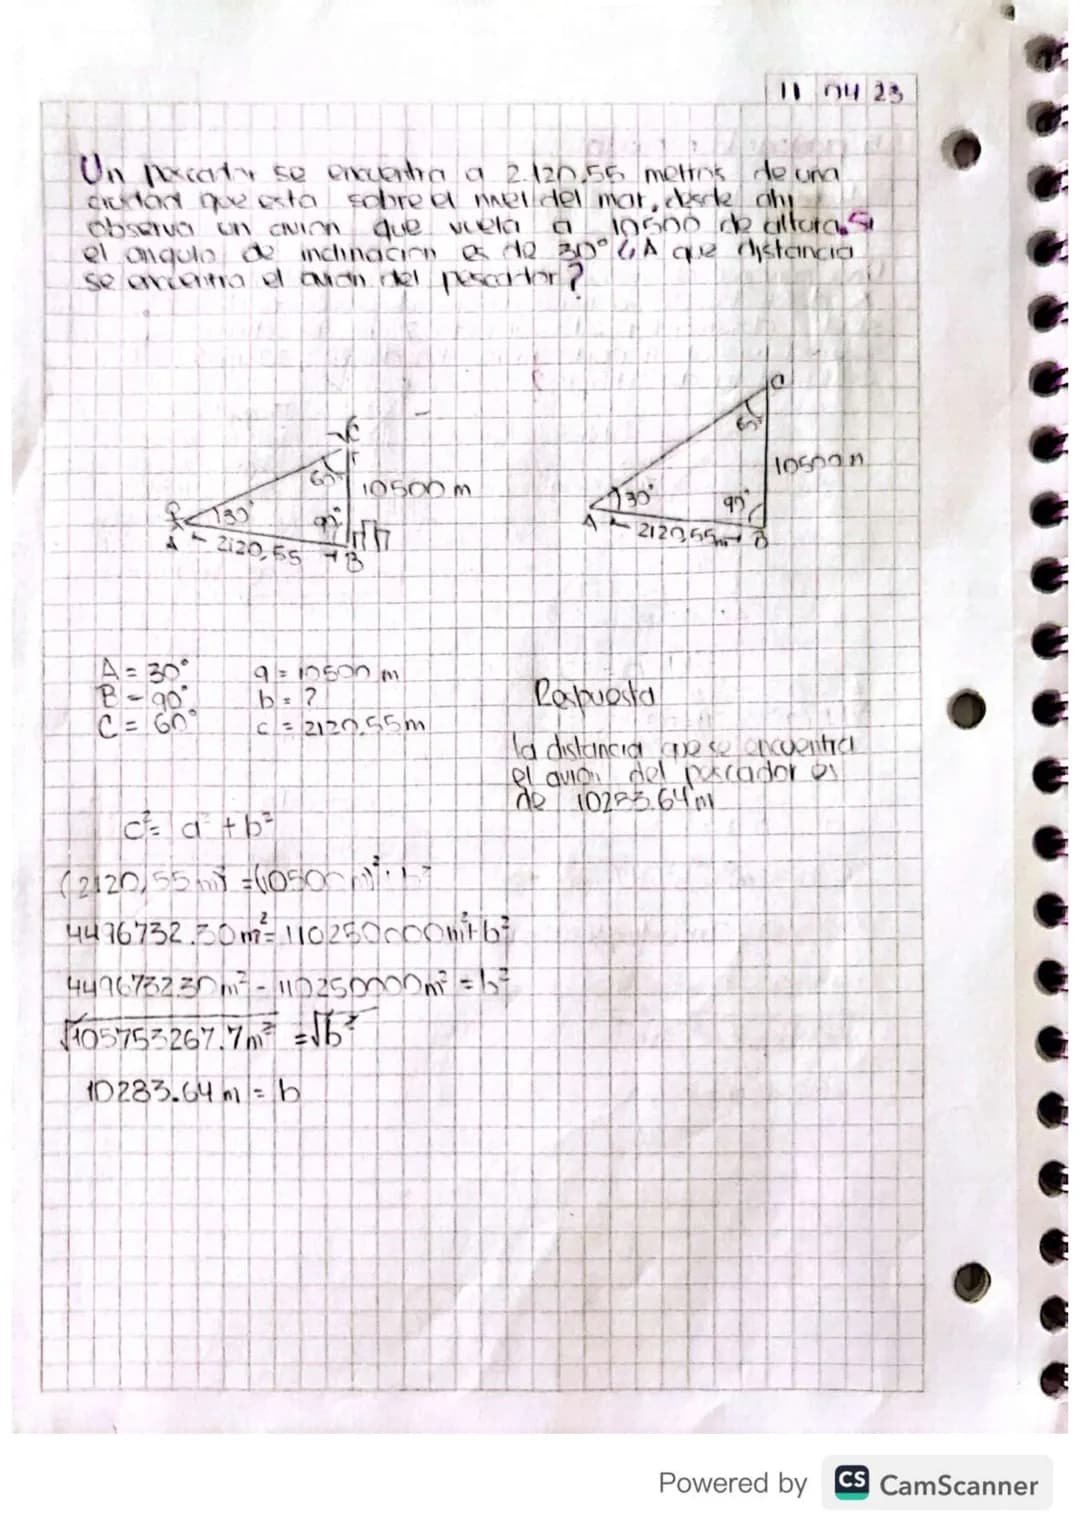 11 04 23
Un pescador se encuentra a 2.120,55 metros de una
ciudad que esta sobre el nivel del mar, desde ahi
observa un avion que vuela a 10500 de altura. Si
el angulo de inclinacion es de 30° ¿A que distancia
se encuentra el avion del pescador?
C
60°
10500 m
30°
90°
A
2120,55
B
C
60°
10500 m
30°
90°
A
2120,55m
B
A = 30° a = 10500 m
B = 90° b = ?
C = 60° c = 2120.55m
Respuesta
la distancia que se encuentra
el avion del pescador es
de 10283.64 m
c² = a² + b²
(2120,55 m)² = (10500 m)² + b²
4496732.30 m² = 110250000 m² + b²
4496732.30 m² - 110250000 m² = b²
√105753267.7 m² = √b²
10283.64 m = b
Powered by CS CamScanner